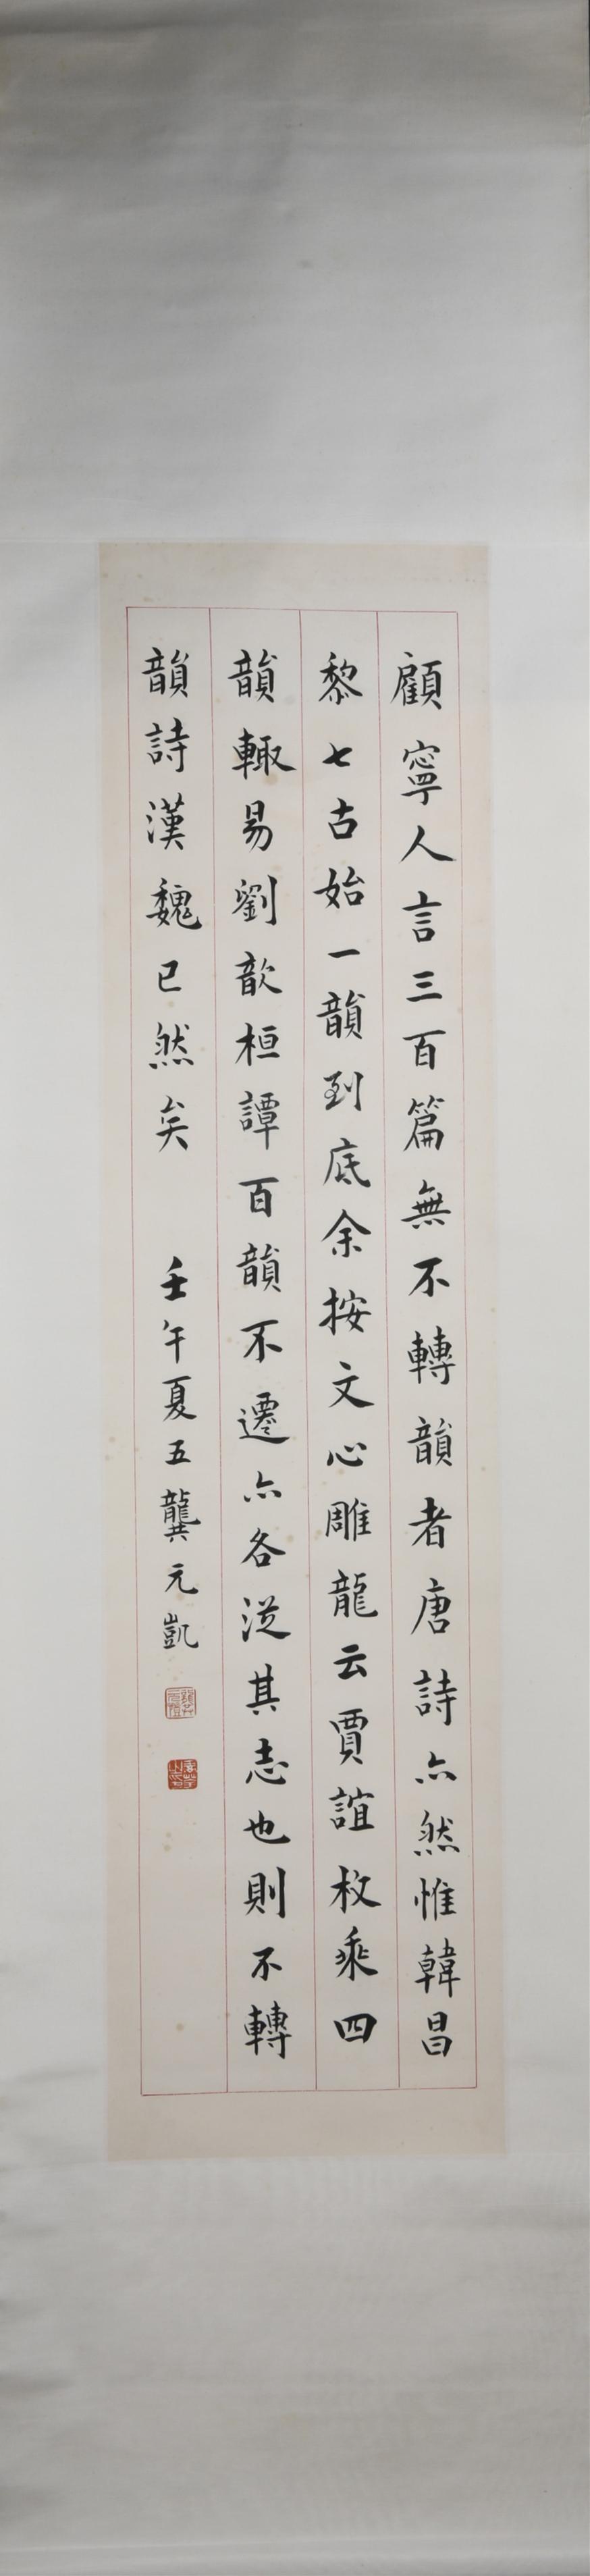 顧寧人言三百篇無不轉韻者唐詩亦然惟韓昌
黎七古始一韻到底余按文心雕龍云賈誼枚乘四
韻輙易劉歆桓譚百韻不遷亦各從其志也則不轉
韻詩漢魏已然矣 壬午夏五龔元凱